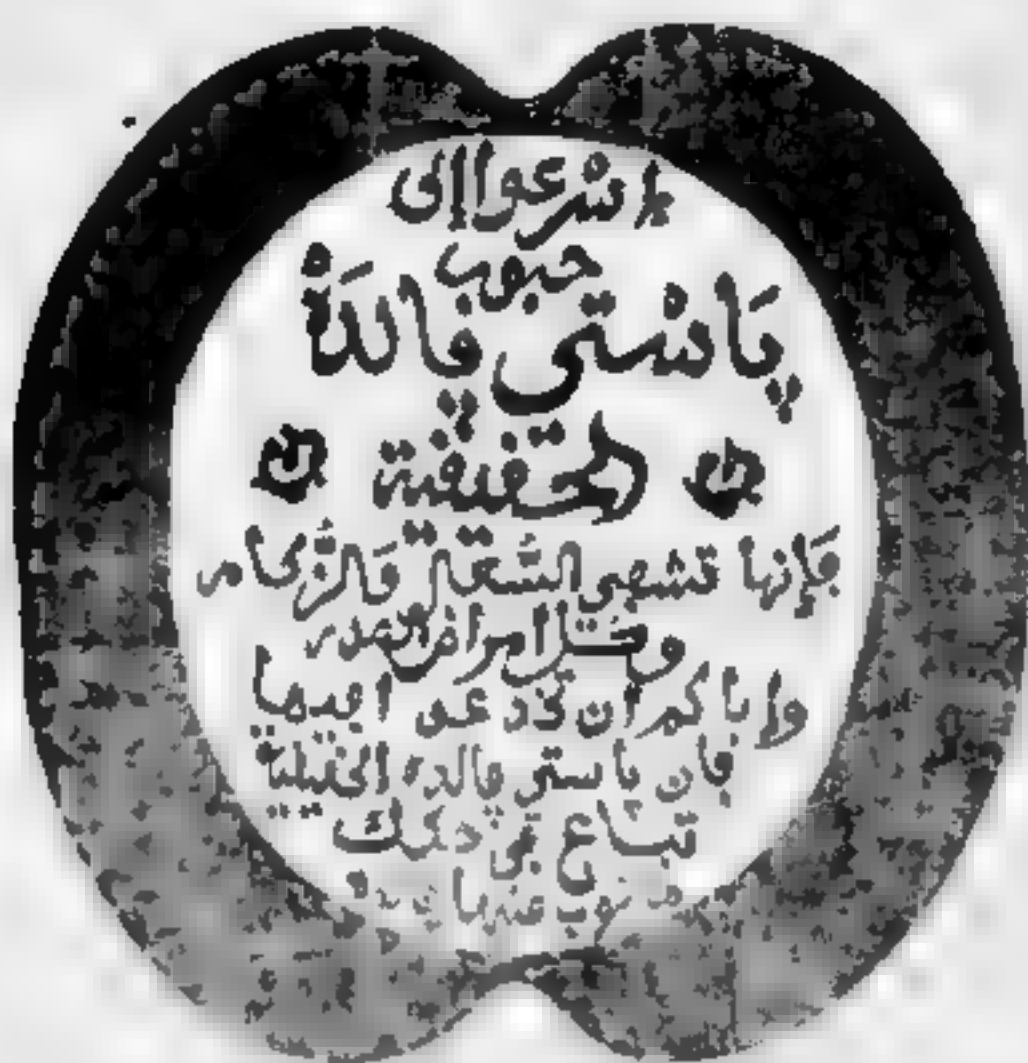 اسْرعوا إلى
حبوب
پَاسْتي ڥالدَهْ
الحقيقية
فإنها تشفي السُّعال والزُّكام
وكل امراض الصدر
وإياكم أن تخدعوا فيها
فان پاستي ڥالده الحقيقية
تباع في
مكتوب عليها